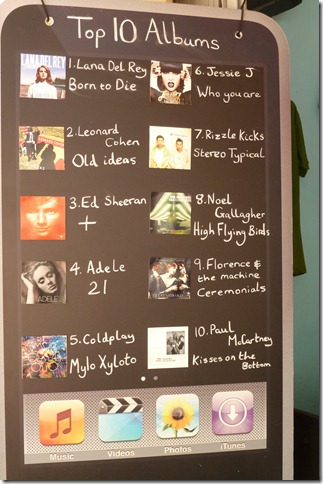 Top 10 Albums
1. Lana Del Rey
Born to Die
2. Leonard
Cohen
Old ideas
3. Ed Sheeran
+
4. Adele
21
5. Coldplay
Mylo Xyloto
6. Jessie J
Who you are
7. Rizzle Kicks
Stereo Typical
8. Noel
Gallagher
High Flying Birds
9. Florence &
the machine
Ceremonials
10. Paul
McCartney
Kisses on the
Bottom
LANA DEL REY
ADELE
Music
Videos
Photos
iTunes